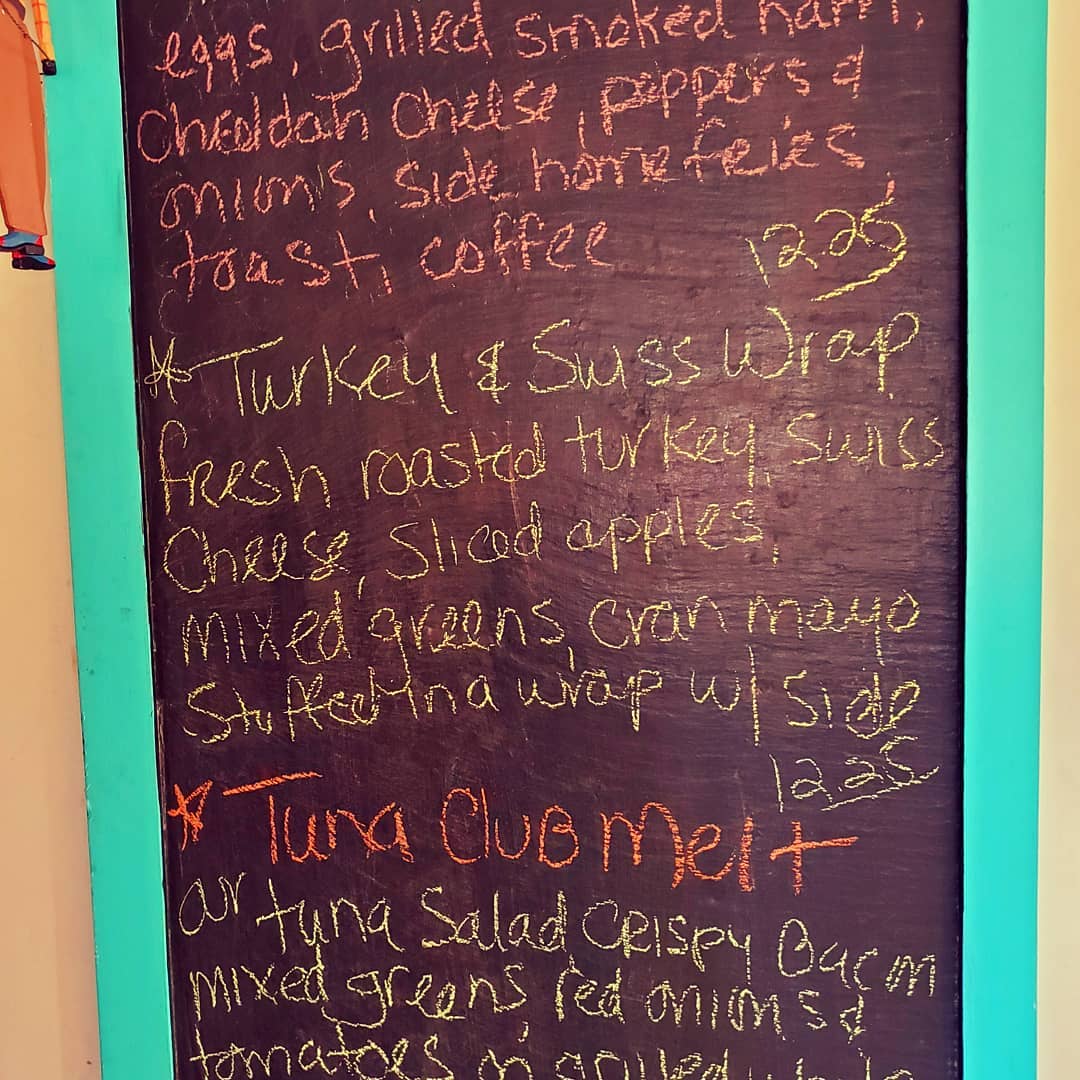 eggs, grilled smoked ham,
cheddah cheese, peppers &
onion's, side home feies,
toast, coffee 12.25
☆ Turkey & Swiss Wrap
fresh roasted turkey, Swiss
Cheese, Sliced apples,
mixed greens, cran mayo
Stuffed in a wrap w/ side
12.25
☆ Tuna Club Melt
our tuna Salad, Crispy Bacon
mixed greens, red onions &
tomatoes on grilled